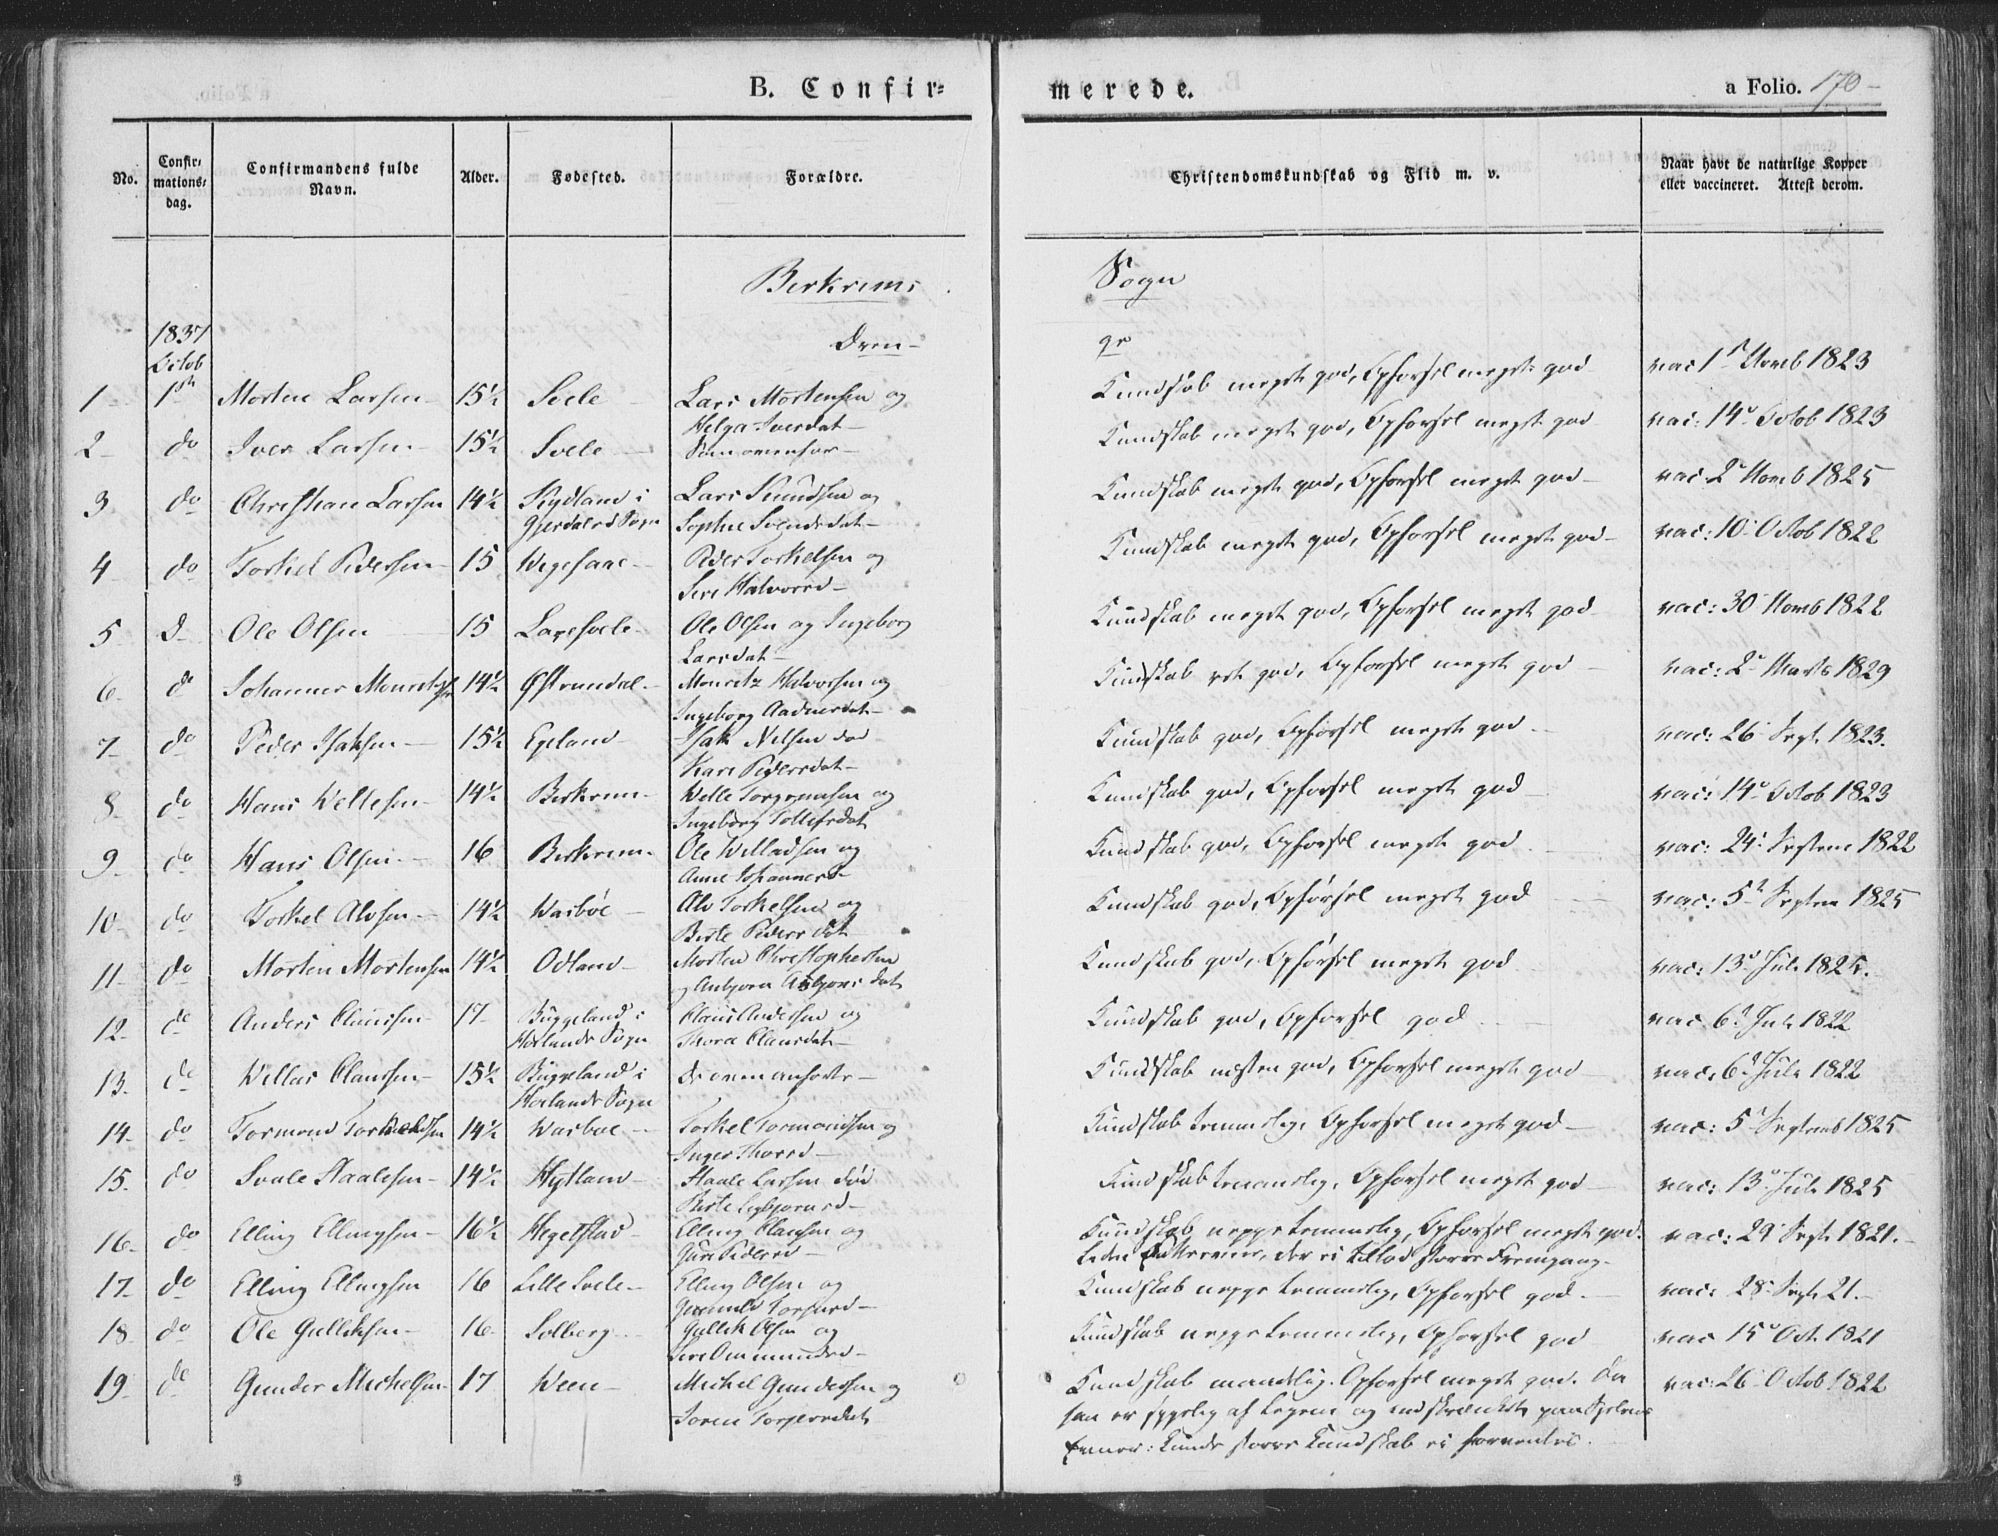 B. Confir=
merede.
a Folio. 170
No.
Confir-
mations-
dag.
Confirmandens fulde
Navn.
Alder.
Fødested.
Forældre.
Christendomskundskab og Flid m. v.
Naar havt de naturlige Kopper
eller vaccineret. Attest derom.
Birkrems
Sogn
1837
Octob
Dren-
ge
1 1ste Morten Larsen 15½ Svele Lars Mortensen og
Helga Iversdat
Kundskab meget god, Opførsel meget god vac 1 Novb 1823
2 do Iver Larsen 15½ Svele Som ovenfor
Kundskab meget god, Opførsel meget god vac: 14 Octob 1823
3 do Christian Larsen 14½ Kydland i
Gjesdals Sogn
Lars Knudsen og
Sophie Svendsdat
Kundskab meget god, Opførsel meget god vac 2 Novb 1825
4 do Torkel Pedersen 15 Peder Torkelsen og
Siri Halvorsd
Kundskab meget god, Opførsel meget god vac: 10 Octob 1822
5 d Ole Olsen 15 Laxesvele Ole Olsen og Ingeborg
Larsdat
Kundskab meget god, Opførsel meget god vac: 30 Novb 1822
6 do Johannes Mouritzsen 14½ Østrumdal Mouritz Halvorsen og
Ingeborg Aadnesdat
Kundskab ret god, Opførsel meget god vac: 2 Marts 1829
7 do Peder Isaksen 15½ Egeland Isak Nilsen død
Kari Pedersdat
Kundskab god, Opførsel meget god vac: 26 Sept. 1823.
8 do Hans Wellesen 14½ Birkrem Welle Torgrimsen og
Ingeborg Tollefsdat
Kundskab god, Opførsel meget god vac: 14 Octob 1823
9 do Hans Olsen 16 Birkrem Ole Willadsen og
Anne Johannesd
Kundskab god, Opførsel meget god vac: 24 Septem 1822
10 do Torkel Alvsen 14½ Wasbøe Alv Torkelsen og
Birte Pedersdat
Kundskab god, Opførsel meget god vac: 5 Septem 1825
11 do Morten Mortensen 14½ Odland Morten Christophersen
og Anbjørn Asbjørnsdat
Kundskab god, Opførsel meget god vac: 13 Juli 1825.
12 do Anders Claussen 17 Buggeland i
Hølands Sogn
Claus Andersen og
Thora Clausdat
Kundskab god, Opførsel god vac 6 Juli 1822
13. do Willas Claussen 15½ Buggeland i
Hølands Sogn
De ovenanførte
Kundskab næsten god, Opførsel meget god vac. 6 Juli 1822
14 do Tormond Torkelsen 14½ Wasboe Torkel Tormondsen og
Inger Thorsd
Kundskab temmelig, Opførsel meget god vac: 5 Septemb 1825
15. do Svale Staalesen 14½ Hytland Staale Larsen død
Birte Sigbjørnsd
Kundskab temmelig, Opførsel meget god vac: 13 Juli 1825
16 do Elling Ellingsen 16½ Hegelstad Elling Clausen og
Guri Pedersd
Kundskab neppe temmelig, Opførsel meget god.
der ei tillod større Fremgang.
vac: 29 Sept. 1821.
17 do Elling Ellingsen 16 Lille Svele Elling Olsen og
Gunnild Torgersd
Kundskab neppe temmelig, Opførsel god. vac: 28 Sept. 21.
18 do Ole Gulliksen 16 Solberg Gullik Olsen og
Siri Ommundsd
Kundskab neppe temmelig, Opførsel god vac 15 Oct. 1821
19 do Gunder Michelsen 17 Ween Michel Gundersen og
Soren Torgersdat
Kundskab maadelig. Opførsel meget god. Da
han er sygelig af Legeme og indskrænket paa Sjelens
Evner: kunde større Kundskab ei forventes.
vac: 26 Octob 1822